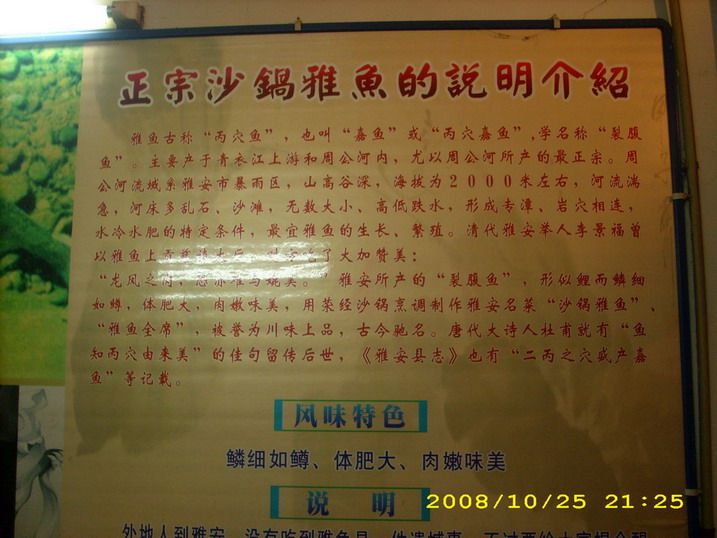 正宗沙鍋雅魚的説明介紹
雅鱼古称“丙穴鱼”，也叫“嘉鱼”或“丙穴嘉鱼”，学名称“裂腹
鱼”。主要产于青衣江上游和周公河内，尤以周公河所产的最正宗。周
公河流域系雅安市暴雨区，山高谷深，海拔为2000米左右，河流湍
急，河床多乱石、沙滩，无数大小、高低跌水，形成专潭、岩穴相连，
水冷水肥的特定条件，最宜雅鱼的生长、繁殖。清代雅安举人李景福曾
以雅鱼上贡慈禧太后，大加赞美：
“龙凤之肉，恐亦难与媲美。”雅安所产的“裂腹鱼”，形似鲤而鳞细
如鳟，体肥大，肉嫩味美，用荥经沙锅烹调制作雅安名菜“沙锅雅鱼”、
“雅鱼全席”，被誉为川味上品，古今驰名。唐代大诗人杜甫就有“鱼
知丙穴由来美”的佳句留传后世，《雅安县志》也有“二丙之穴或产嘉
鱼”等记载。
风味特色
鳞细如鳟、体肥大、肉嫩味美
说 明
外地人到雅安，没有吃到雅鱼是一件遗憾事，不过要给大家提个醒
2008/10/25 21:25